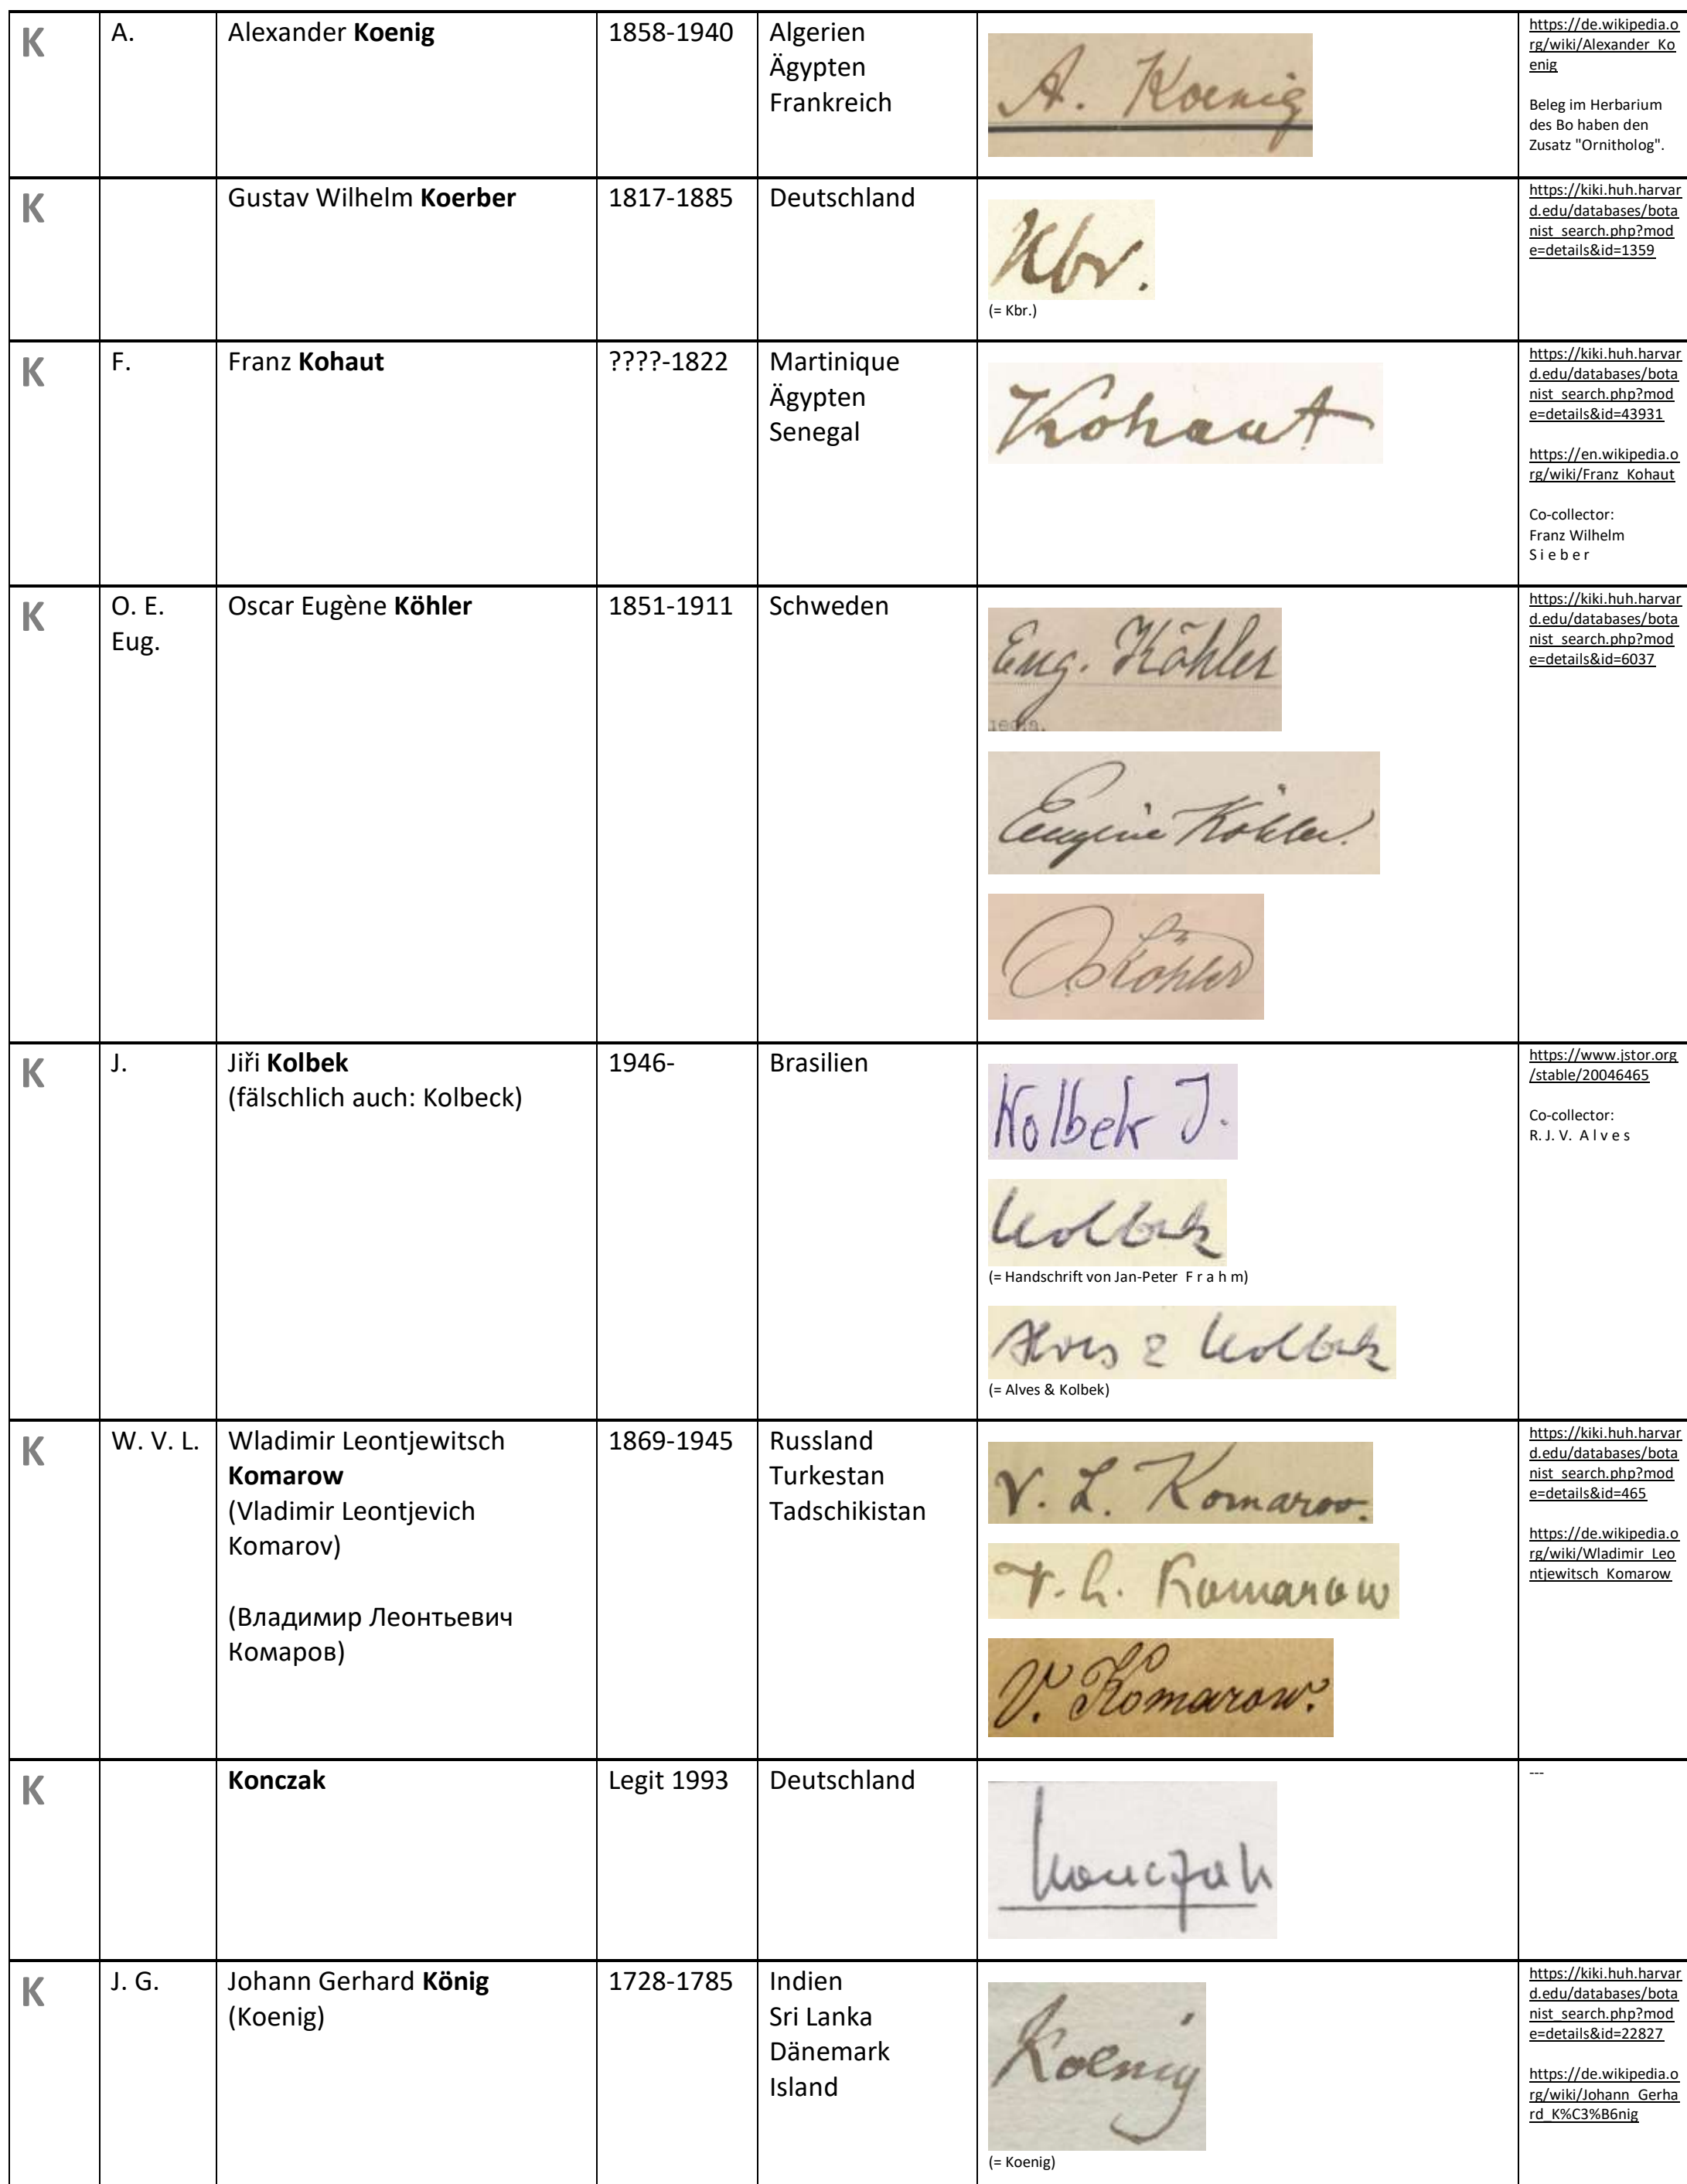 K
A.
Alexander Koenig
1858-1940
Algerien
Ägypten
Frankreich
A. Koenig
https://de.wikipedia.o
rg/wiki/Alexander_Ko
enig
Beleg im Herbarium
des Bo haben den
Zusatz "Ornitholog".
K
Gustav Wilhelm Koerber
1817-1885
Deutschland
Kbr.
(= Kbr.)
https://kiki.huh.harvar
d.edu/databases/bota
nist_search.php?mod
e=details&id=1359
K
F.
Franz Kohaut
????-1822
Martinique
Ägypten
Senegal
Kohaut
https://kiki.huh.harvar
d.edu/databases/bota
nist_search.php?mod
e=details&id=43931
https://en.wikipedia.o
rg/wiki/Franz_Kohaut
Co-collector:
Franz Wilhelm
S i e b e r
K
O. E.
Eug.
Oscar Eugène Köhler
1851-1911
Schweden
Eug. Köhler
Eugène Köhler.
O Köhler
https://kiki.huh.harvar
d.edu/databases/bota
nist_search.php?mod
e=details&id=6037
K
J.
Jiři Kolbek
(fälschlich auch: Kolbeck)
1946-
Brasilien
Kolbek J.
Kolbek
(= Handschrift von Jan-Peter F r a h m)
Alves & Kolbek
(= Alves & Kolbek)
https://www.jstor.org
/stable/20046465
Co-collector:
R. J. V. A l v e s
K
W. V. L.
Wladimir Leontjewitsch
Komarow
(Vladimir Leontjevich
Komarov)
(Владимир Леонтьевич
Комаров)
1869-1945
Russland
Turkestan
Tadschikistan
V. L. Komarov.
V. L. Komarow
V. Komarow.
https://kiki.huh.harvar
d.edu/databases/bota
nist_search.php?mod
e=details&id=465
https://de.wikipedia.o
rg/wiki/Wladimir_Leo
ntjewitsch_Komarow
K
Konczak
Legit 1993
Deutschland
Konczak
---
K
J. G.
Johann Gerhard König
(Koenig)
1728-1785
Indien
Sri Lanka
Dänemark
Island
Koenig
(= Koenig)
https://kiki.huh.harvar
d.edu/databases/bota
nist_search.php?mod
e=details&id=22827
https://de.wikipedia.o
rg/wiki/Johann_Gerha
rd_K%C3%B6nig